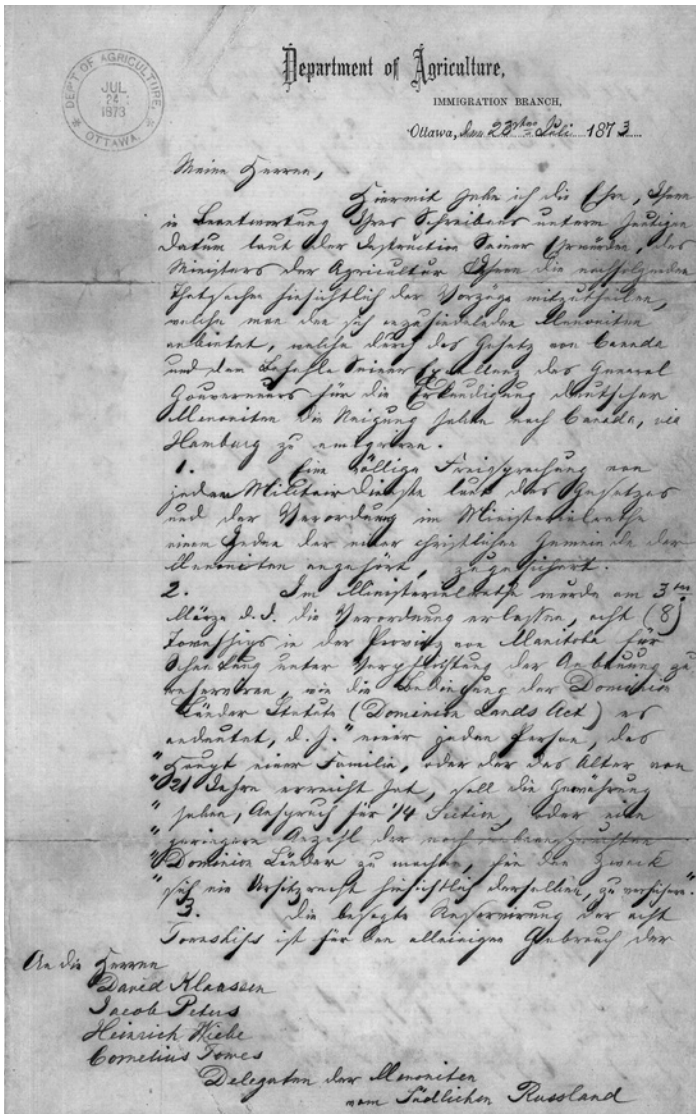 DEPT. OF AGRICULTURE,
JUL
24
1873
OTTAWA.
Department of Agriculture,
IMMIGRATION BRANCH,
Ottawa, den 23sten Juli 1873
Meine Herren,
Hiermit habe ich die Ehre, Ihnen
in Beantwortung Ihres Schreibens unterm heutigen
Datum laut der Instruction Seiner Ehrwürden, des
Ministers der Agricultur Ihnen die nachfolgenden
Thatsachen hinsichtlich der Vorzüge mitzutheilen,
welche man den sich anzusiedelnden Menoniten
anbietet, welche durch das Gesetz von Canada
und den Befehle Seiner Excellenz des General
Gouverneurs für die deutscher
Menoniten die Neigung haben nach Canada, via
Hamburg zu emigriren.
1. Eine völlige Freisprechung von
jedem Militair Dienste laut des Gesetzes
und der Verordnung im Ministerialrathe
einem Jeden der einer christlichen Gemeinde der
Menoniten angehört, zugesichert.
2. Im Ministerialrathe wurde am 3ten
März d. J. die Verordnung erlassen, acht (8)
Townships in der Provinz von Manitoba für
Schenkung unter Verpflichtung der Anbauung zu
reserviren, wie die Bedingung der Dominion
Länder Statute (Dominion Lands Act) es
andeutet, d. h. "einer jeden Person, das
"Haupt einer Familie, oder der das Alter von
"21 Jahre erreicht hat, soll die Gewährung
"haben, Anspruch für 1/4 Section, oder eine
"geringere Anzahl der noch unbeanspruchten
"Dominion Länder zu machen, für den Zweck
"sich ein hinsichtlich derselben, zu versichern."
3. Die besagte Reservirung der acht
Townships ist für den alleinigen Gebrauch der
An die Herren
David Klaassen
Jacob Peters
Heinrich Wiebe
Cornelius Töwes
Delegaten der Menoniten
vom Südlichen Russland